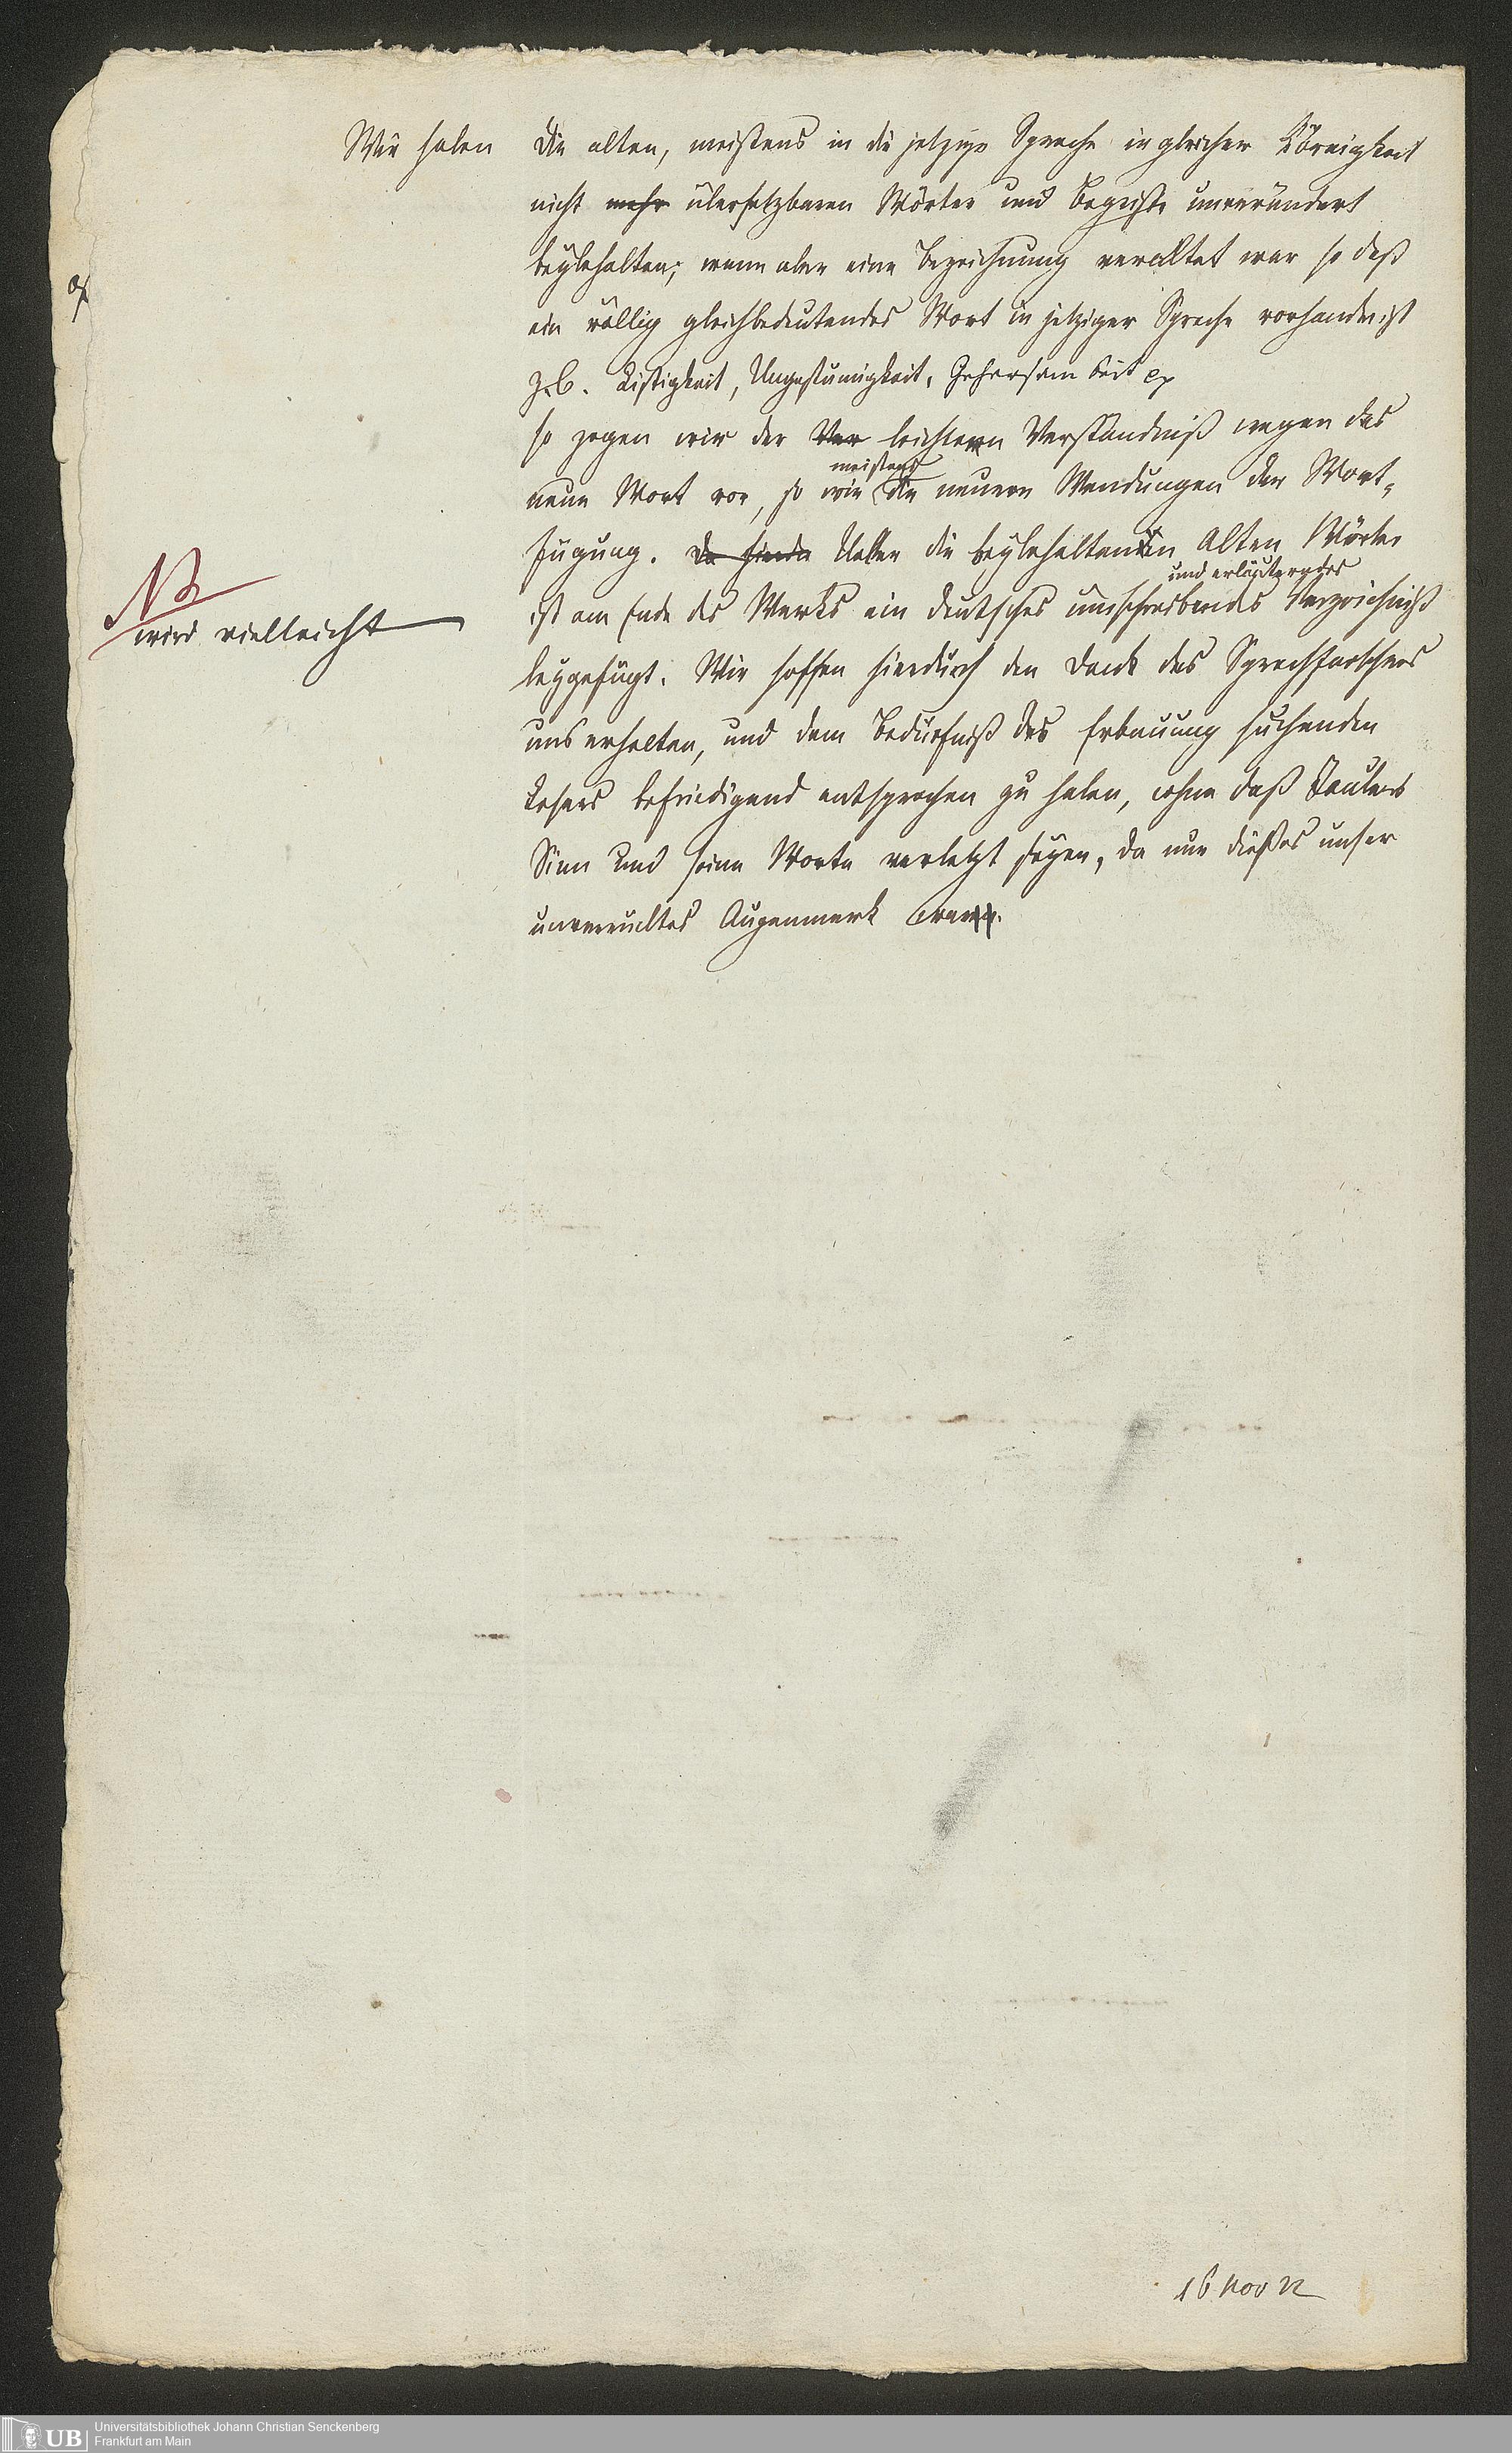 Wir haben die alten, meistens in die jetzige Sprache in gleicher Körnigkeit
nicht mehr übersetzbaren Wörter und Begriffe unverändert
beybehalten; wenn aber eine Bezeichnung veraltet war so daß
ein völlig gleichbedeutendes Wort in jetziger Sprache vorhanden ist
z.b. Listigkeit, Ungestümigkeit, Gehorsamkeit
so zogen wir der Ver leichtern Verständniß wegen das
meistens
neue Wort vor, so wie die neuern Wendungen der Wort-
fügung. Ueber die beybehaltenen Alten Wörter
und erläuterndes
NB
ist am Ende des Werks ein deutsches umschreibendes Verzeichniß
wird vielleicht
beygefügt. Wir hoffen hierdurch den Dank des Sprachforschers
uns erhalten, und dem Bedürfniß des Erbauung suchenden
Lesers befriedigend entsprochen zu haben, ohne daß Taulers
Sinn und seine Worte verletzt seyen, da nur dießes unser
unverrücktes Augenmerk war.
16 Nov 22
UB
Universitätsbibliothek Johann Christian Senckenberg
Frankfurt am Main